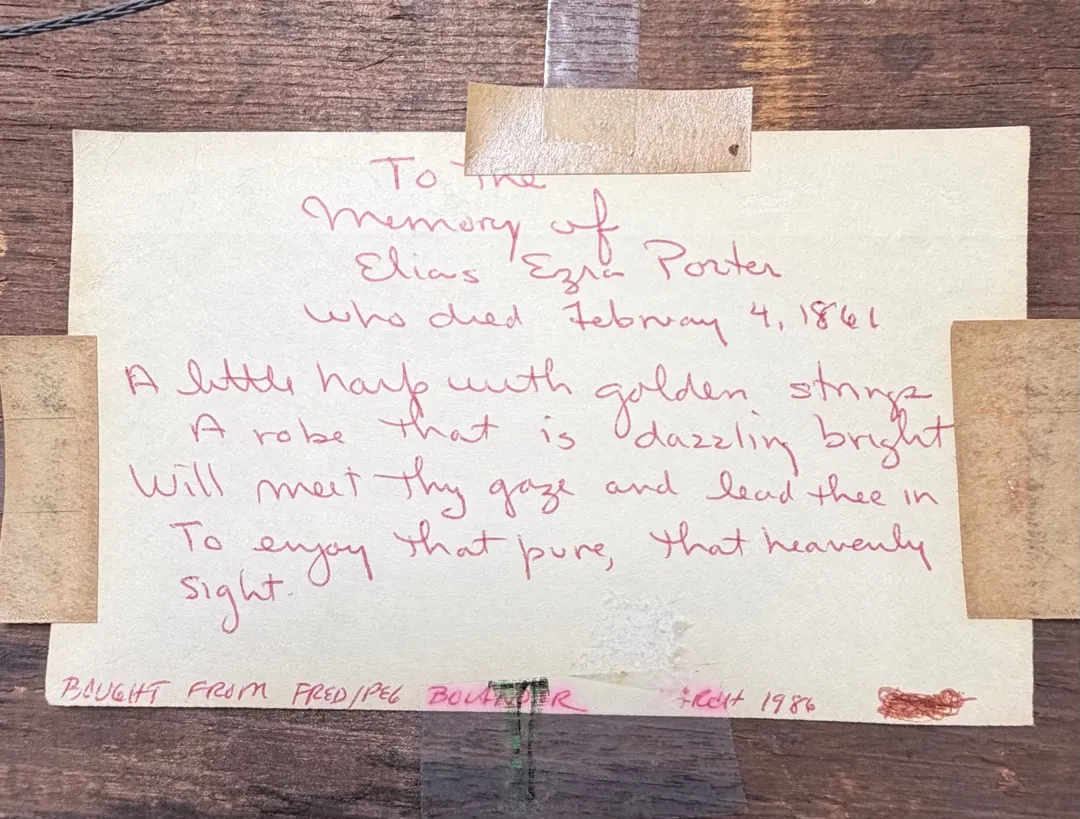 To The
Memory of
Elias Ezra Porter
who died February 4, 1861
A little harp with golden strings
A robe that is dazzling bright
Will meet thy gaze and lead thee in
To enjoy that pure, that heavenly
sight.
BOUGHT FROM FRED/PEG BOLANDER 1986